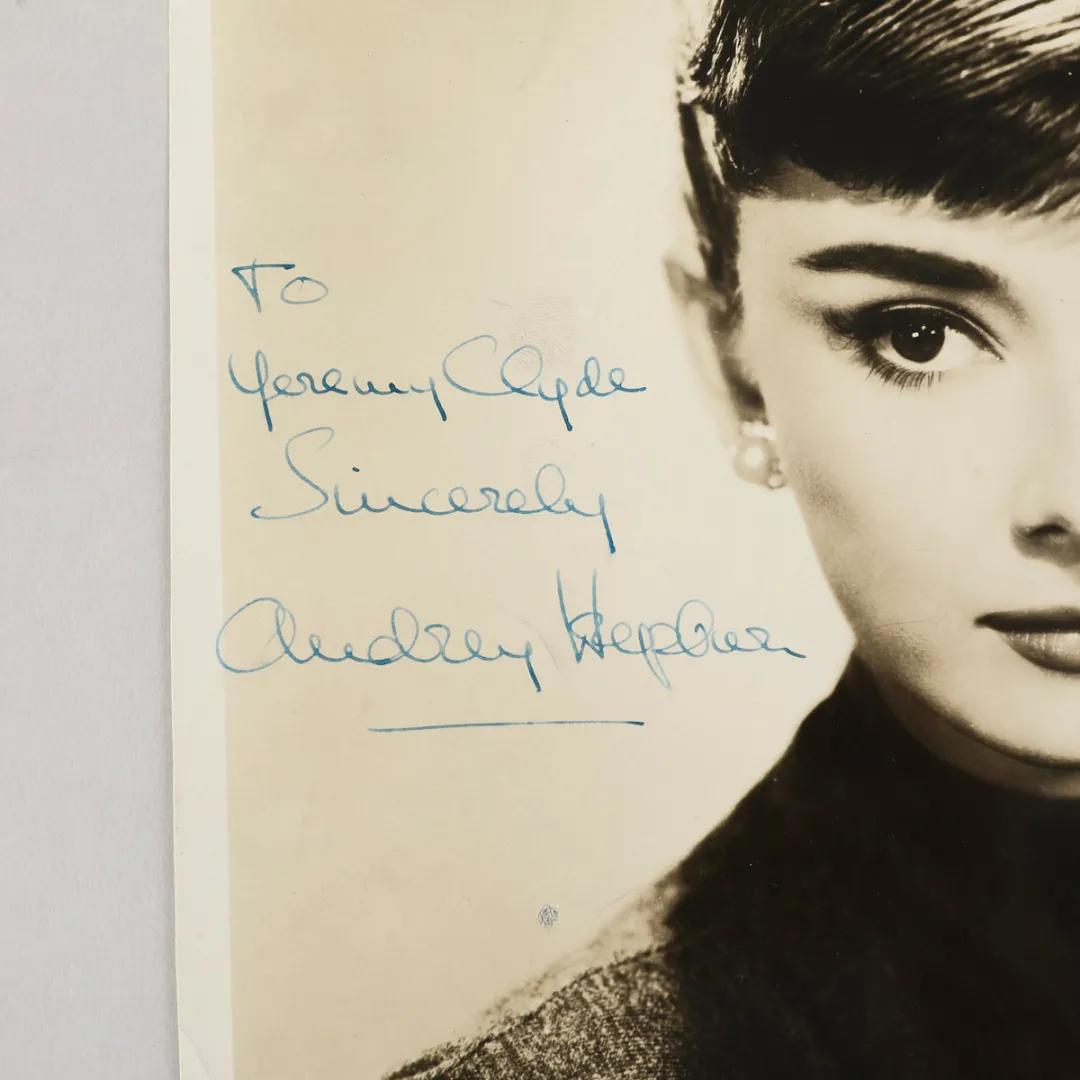 To
Jeremy Clyde
Sincerely
Audrey Hepburn